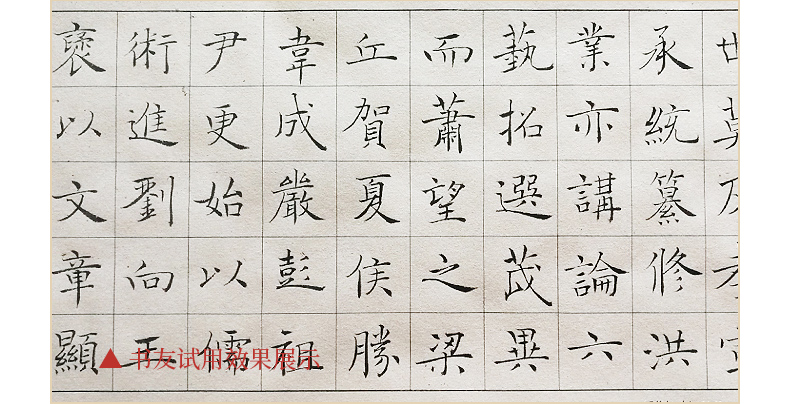 世莫及孝宣
承統纂修洪
業亦講論六
藝拓選茂異
而蕭望之梁
丘賀夏侯勝
韋成嚴彭祖
尹更始以儒
術進劉向王
褒以文章顯
书友试用效果展示